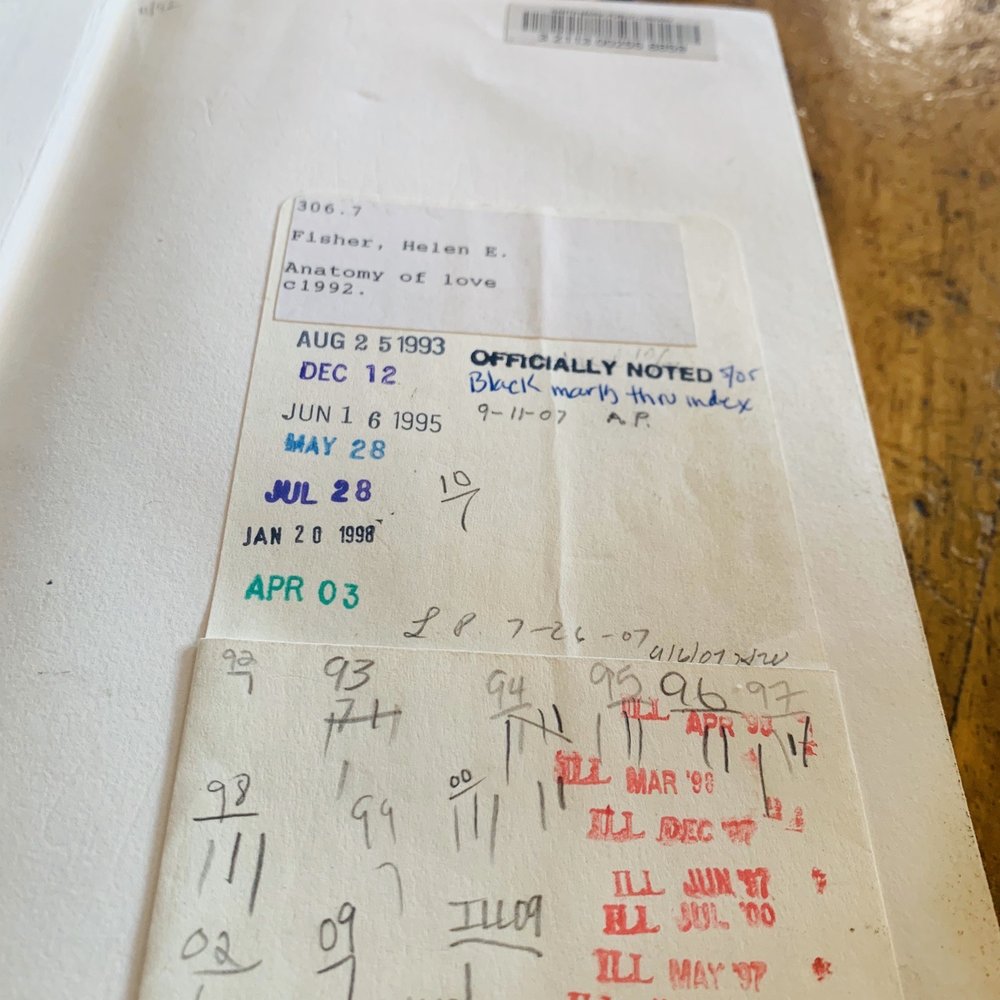 306.7
Fisher, Helen E.
Anatomy of love
c1992.
AUG 25 1993
OFFICIALLY NOTED for
DEC 12
Black marks thru index
JUN 16 1995
9-11-07 A.P.
MAY 28
JUL 28
10
7
JAN 20 1998
APR 03
L P. 7-26-07
92 93 94 95 96 97
ILL APR
ILL MAR '98
98 00
ILL DEC '97
99
ILL JUN '97
ILL JUL '00
02 09 ILL09
ILL MAY '97
ILL